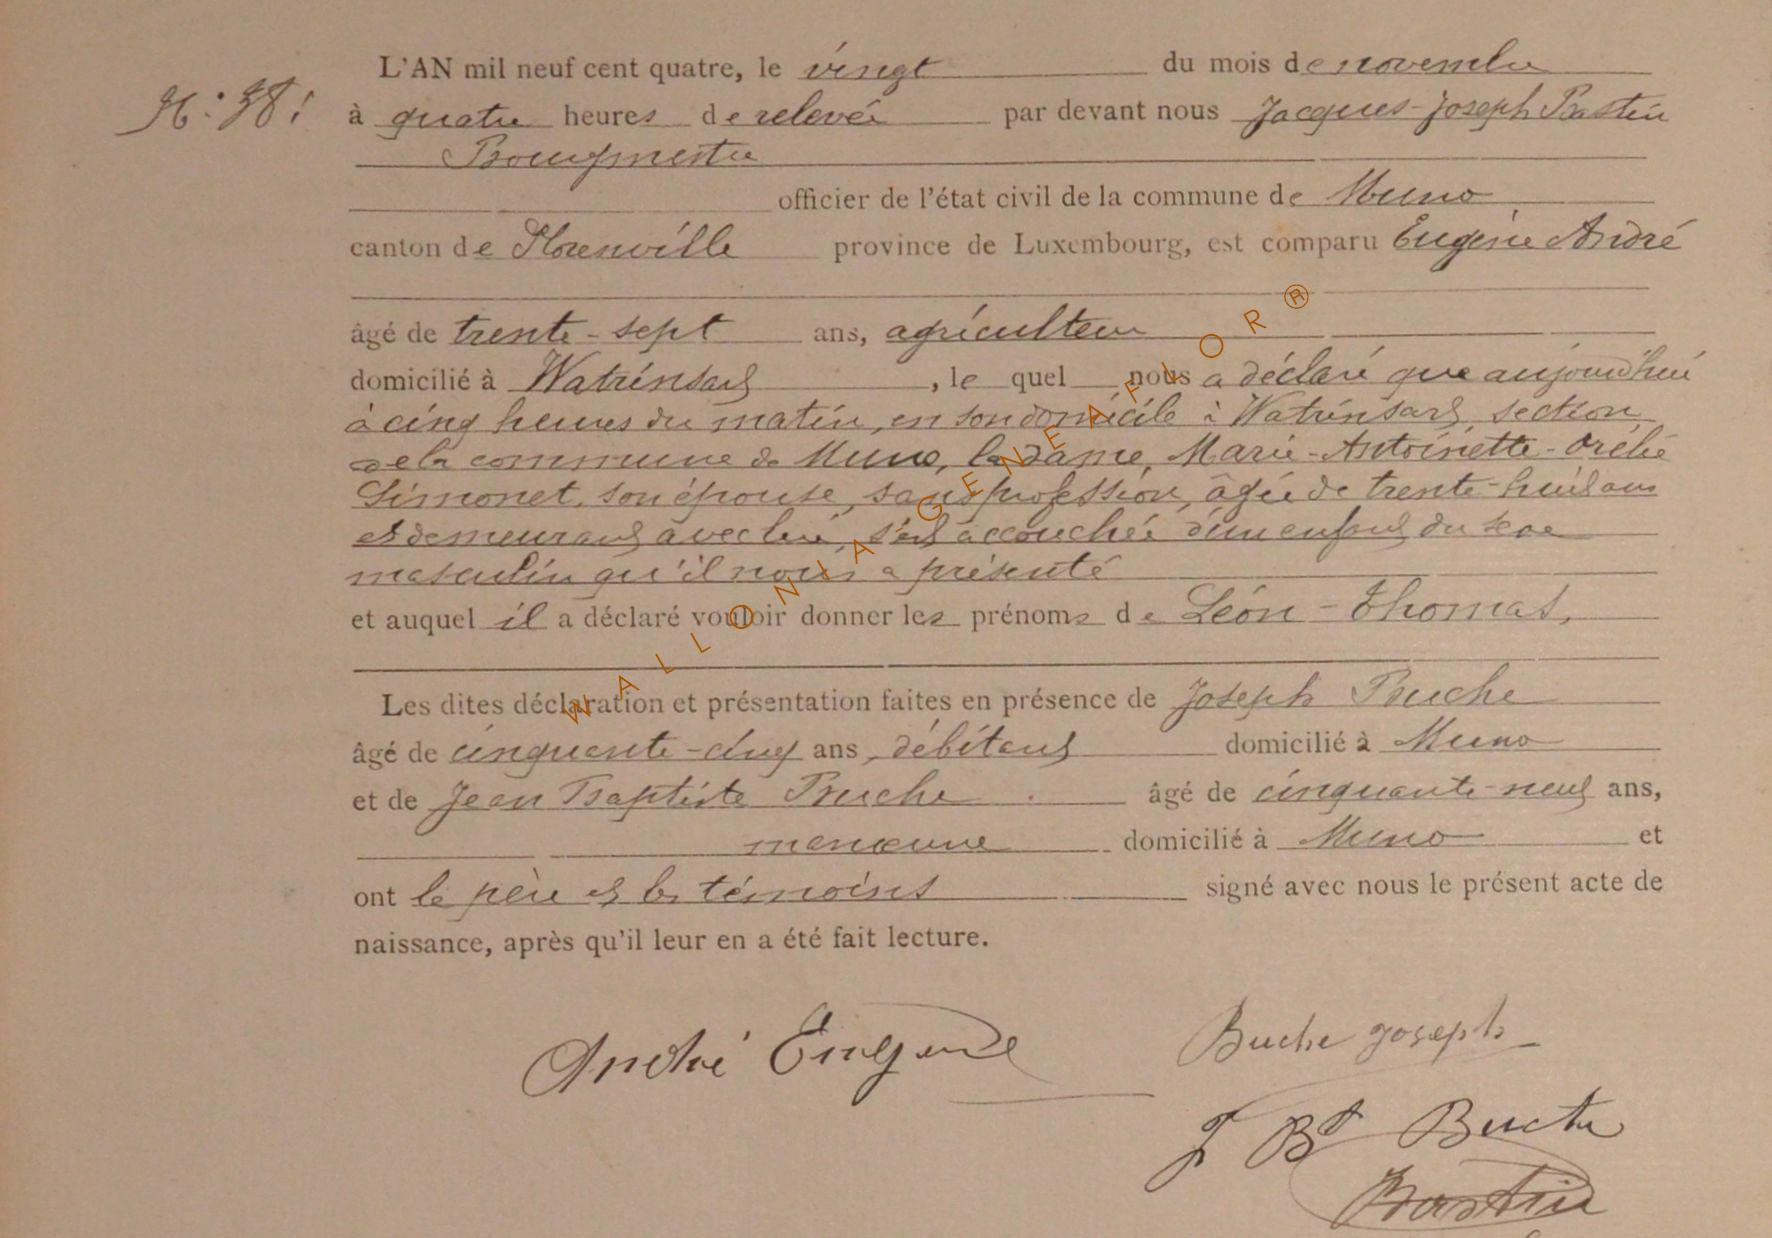 L'AN mil neuf cent quatre, le vingt du mois de novembre
N.° 38. à quatre heures de relevée par devant nous Jacques-Joseph Bastin
Bourgmestre
officier de l'état civil de la commune de Muno
canton de Florenville province de Luxembourg, est comparu Eugène André
âgé de trente-sept ans, agriculteur
domicilié à Watrinsart, le quel nous a déclaré que aujourd'hui
à cinq heures du matin, en son domicile à Watrinsart, section
de la commune de Muno, la dame, Marie-Antoinette-Orélie
Simonet, son épouse, sans profession, âgée de trente-huit ans
et demeurant avec lui, s'est accouchée d'un enfant du sexe
masculin qu'il nous a présenté
et auquel il a déclaré vouloir donner les prénoms de Léon-Thomas,
Les dites déclaration et présentation faites en présence de Joseph Buche
âgé de cinquante-cinq ans, débitant domicilié à Muno
et de Jean Baptiste Buche âgé de cinquante-neuf ans,
manœuvre domicilié à Muno et
ont le père et les témoins signé avec nous le présent acte de
naissance, après qu'il leur en a été fait lecture.
André Eugène
Buche Joseph
J Bt Buche
Bastin
WALLONIA GENEAFLOR ®